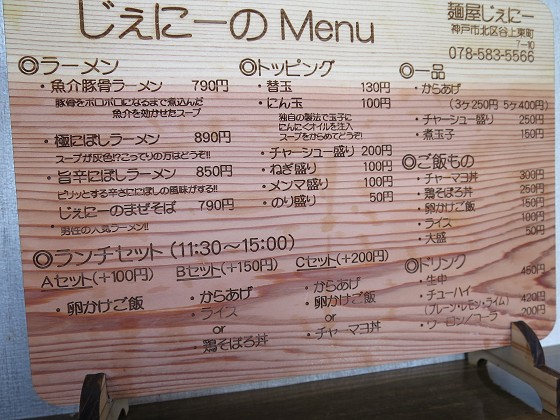 じぇにーのMenu
麺屋じぇにー
神戸市北区谷上東町
7-10
078-583-5566
◎ラーメン
・魚介豚骨ラーメン 790円
豚骨をボロボロになるまで煮込んだ
魚介を効かせたスープ
・極にぼしラーメン 890円
スープが灰色!?こってりの方はどうぞ!!
・旨辛にぼしラーメン 850円
ピリッとする辛さににぼしの風味がする!!
・じぇにーのまぜそば 790円
男性の人気ラーメン!!
◎トッピング
・替玉 130円
・にん玉 100円
独自の製法で玉子に
にんにくオイルを注入
スープをからめてどうぞ!
・チャーシュー盛り 200円
・ねぎ盛り 100円
・メンマ盛り 100円
・のり盛り 50円
◎一品
・からあげ
(3ヶ250円 5ヶ400円)
・チャーシュー盛り 250円
・煮玉子 150円
◎ご飯もの
・チャーマヨ丼 300円
・鶏そぼろ丼 250円
・卵かけご飯 150円
・ライス 100円
・大盛 50円
◎ドリンク
・生中 450円
・チューハイ 420円
(プレーン・レモン・ライム)
・ウーロン/コーラ 200円
◎ランチセット (11:30～15:00)
Aセット(+100円)
・卵かけご飯
Bセット(+150円)
・からあげ
・ライス
or
・鶏そぼろ丼
Cセット(+200円)
・からあげ
・卵かけご飯
or
・チャーマヨ丼